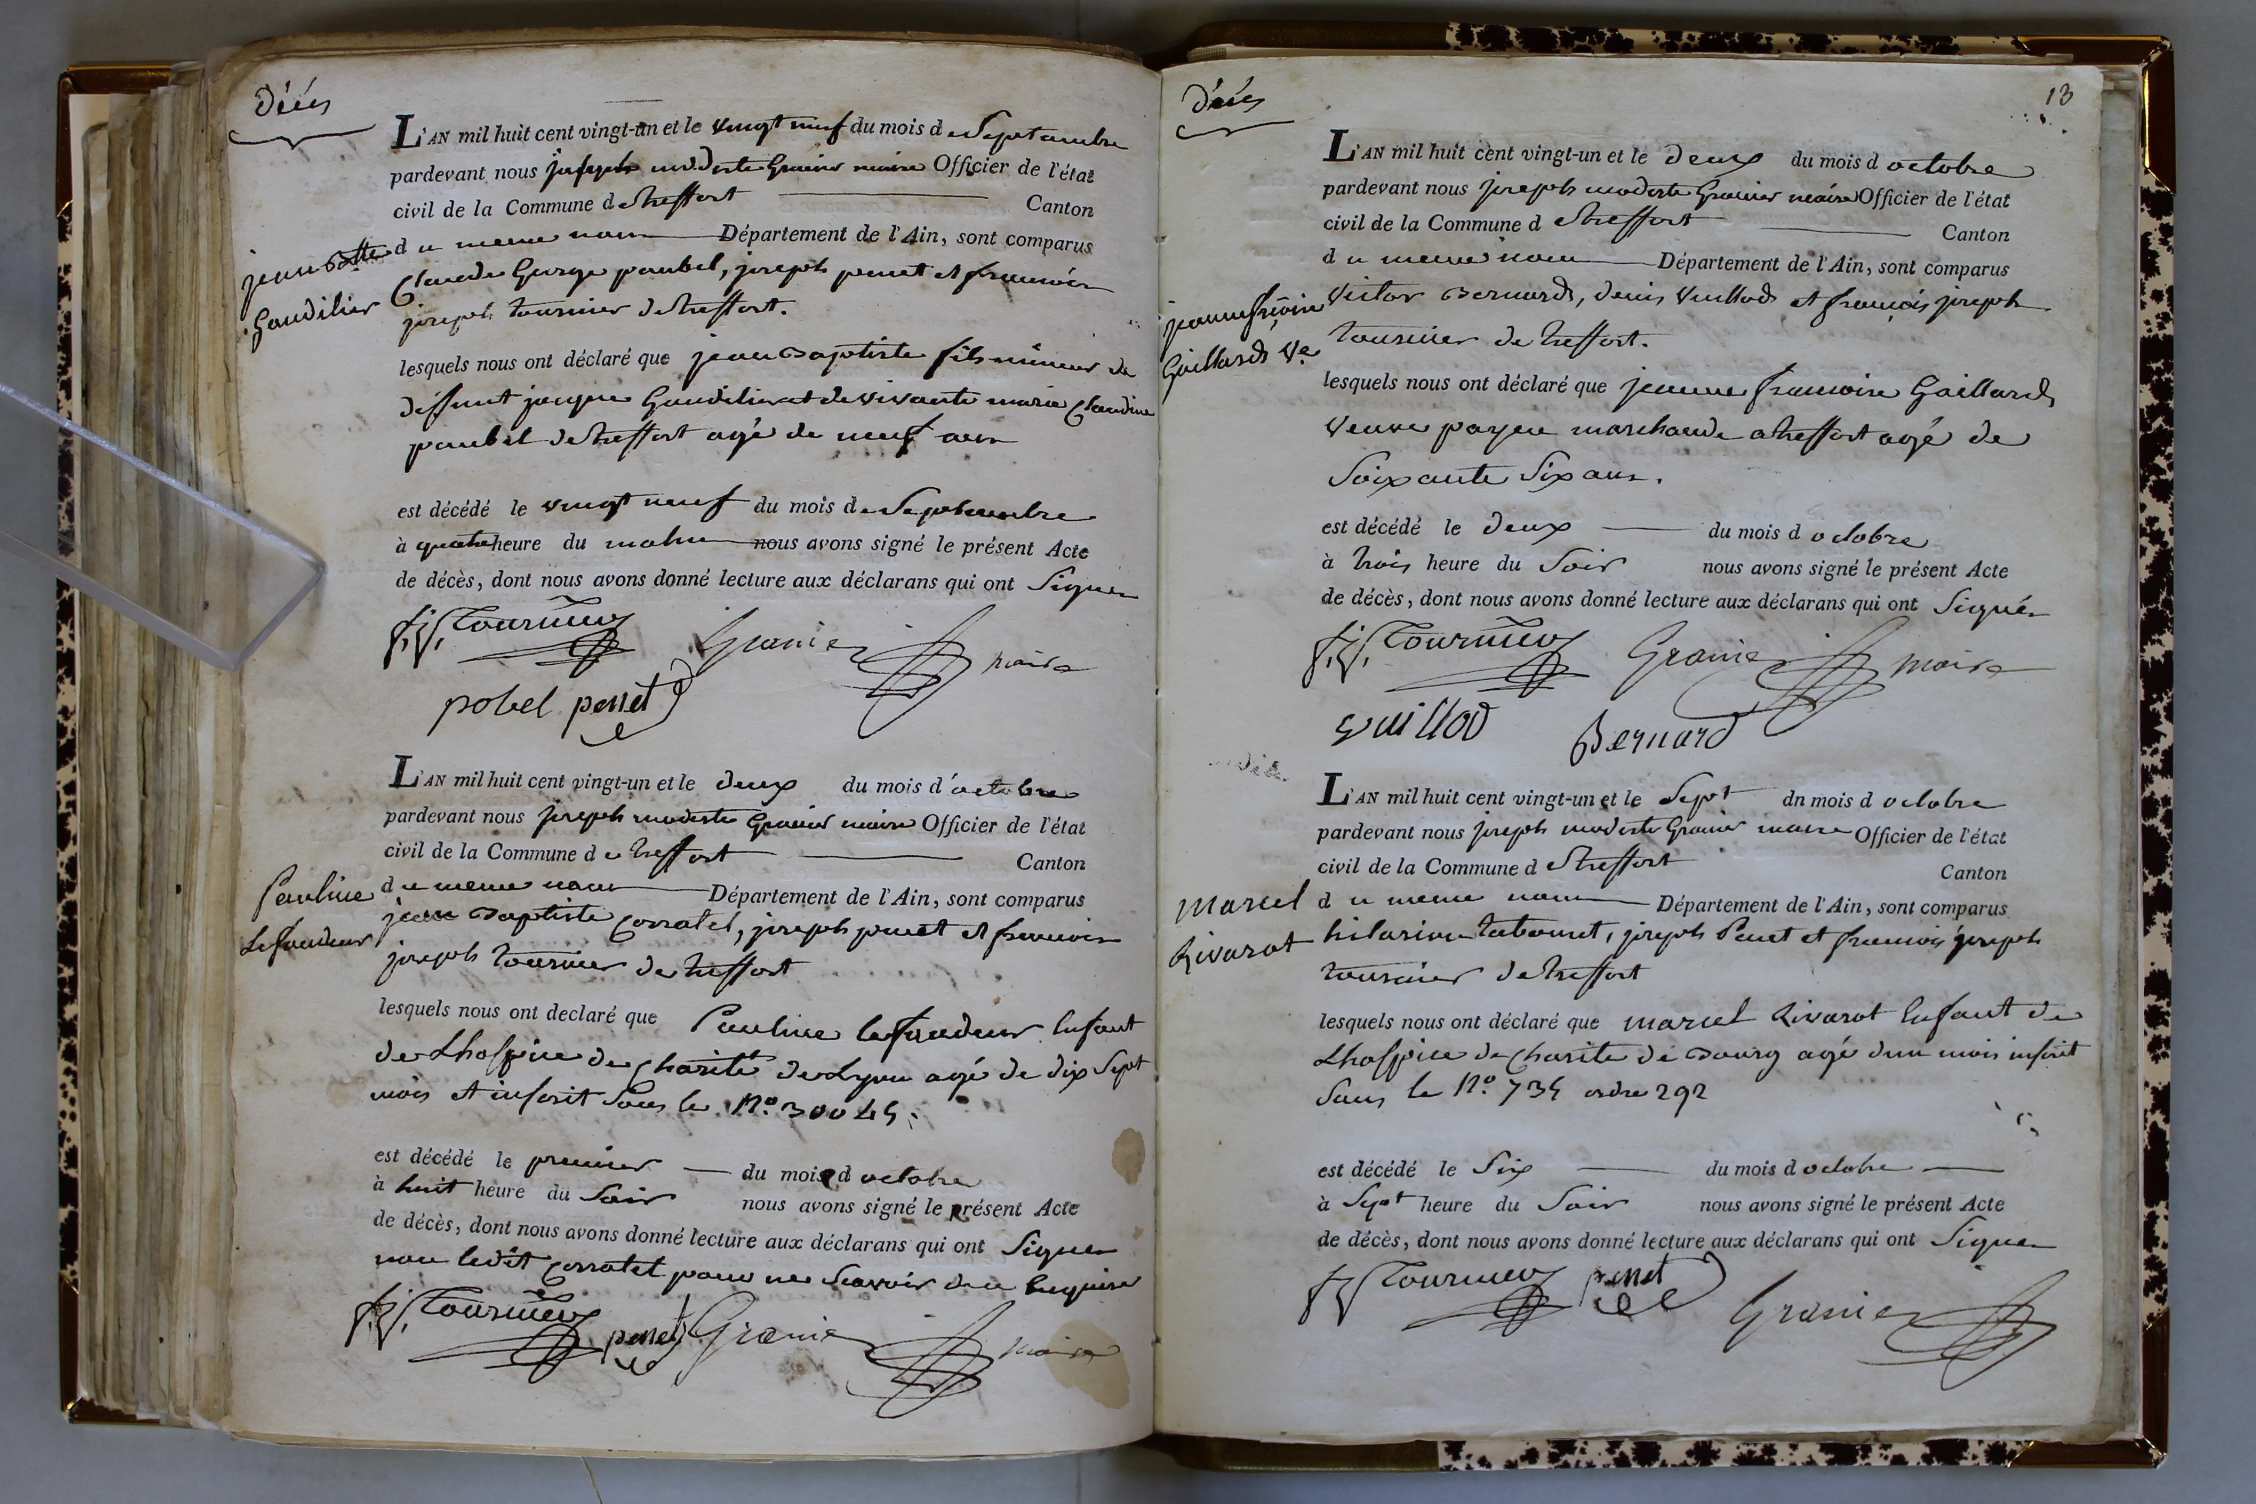 Décès
L'AN mil huit cent vingt-un et le vingt neuf du mois de Septambre
pardevant nous joseph modeste Granier maire Officier de l'état
civil de la Commune de treffort Canton
du meme nom Département de l'Ain, sont comparus
jean Btte
Gaudilier
Claude George paubel, joseph penet et francois
joseph tournier de treffort.
lesquels nous ont déclaré que jean Baptiste fils mineur de
deffunt jacque Gaudilier et de vivante marie Claudine
paubel de treffort agé de neuf ans
est décédé le vingt neuf du mois de Septambre
à quatre heure du matin nous avons signé le présent Acte
de décès, dont nous avons donné lecture aux déclarans qui ont Signer
f. j. Tournier Granier maire
pobel penet
L'AN mil huit cent vingt-un et le deux du mois d'octobre
pardevant nous joseph modeste Granier maire Officier de l'état
civil de la Commune de treffort Canton
du meme nom Département de l'Ain, sont comparus
Pauline
Lefaudeur
jean Baptiste Corratel, joseph penet et francois
joseph tournier de treffort
lesquels nous ont declaré que Pauline lefaudeur Enfant
de Lhospice de Charité de Lyon agé de dix Sept
mois et inscrit Sous le N.º 30045.
est décédé le premier du mois d octobre
à huit heure du Soir nous avons signé le présent Acte
de décès, dont nous avons donné lecture aux déclarans qui ont Signer
non ledit Corratel pour ne Scavoir de ce Enquire
f. j. Tournier penet Granier maire
Décès
13
L'AN mil huit cent vingt-un et le deux du mois d octobre
pardevant nous joseph modeste Granier maire Officier de l'état
civil de la Commune d Etreffort Canton
du meme nom Département de l'Ain, sont comparus
jeanne frçoise
Gaillard Ve
Victor Bernard, denis Vuillod et françois joseph
tournier de treffort.
lesquels nous ont déclaré que jeanne francoise Gaillard
veuve payen marchande a treffort agé de
Soixante Six ans.
est décédé le deux du mois d octobre
à trois heure du Soir nous avons signé le présent Acte
de décès, dont nous avons donné lecture aux déclarans qui ont Signér
f. j. Tournier Granier maire
Vuillod Bernard
L'AN mil huit cent vingt-un et le Sept dn mois d octobre
pardevant nous joseph modeste Granier maire Officier de l'état
civil de la Commune d Etreffort Canton
du meme nom Département de l'Ain, sont comparus
Marcel
Rivarot
hilarion tabouret, joseph Penet et francois joseph
tournier de treffort
lesquels nous ont déclaré que marcel Rivarot Enfant de
Lhospice de Charite de Bourg agé dun mois inscrit
Sous le N.º 735 ordre 292
est décédé le Six du mois d octobre
à Sept heure du Soir nous avons signé le présent Acte
de décès, dont nous avons donné lecture aux déclarans qui ont Signer
f. j. Tournier penet
Granier